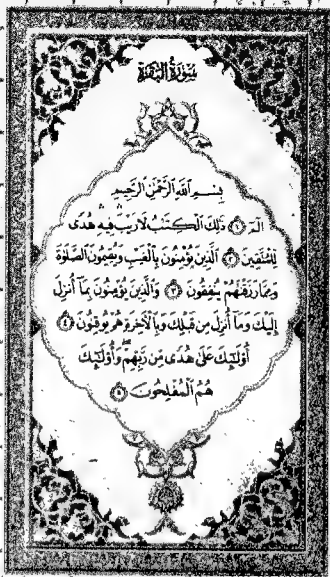 سُورَةُ البَقَرَةِ
بِسْمِ اللَّهِ الرَّحْمَٰنِ الرَّحِيمِ
الٓمٓ ﴿١﴾ ذَٰلِكَ الْكِتَٰبُ لَا رَيْبَ فِيهِ هُدًى
لِّلْمُتَّقِينَ ﴿٢﴾ الَّذِينَ يُؤْمِنُونَ بِالْغَيْبِ وَيُقِيمُونَ الصَّلَوٰةَ
وَمِمَّا رَزَقْنَٰهُمْ يُنفِقُونَ ﴿٣﴾ وَالَّذِينَ يُؤْمِنُونَ بِمَآ أُنزِلَ
إِلَيْكَ وَمَآ أُنزِلَ مِن قَبْلِكَ وَبِالْأَخِرَةِ هُمْ يُوقِنُونَ ﴿٤﴾
أُو۟لَٰٓئِكَ عَلَىٰ هُدًى مِّن رَّبِّهِمْ وَأُو۟لَٰٓئِكَ
هُمُ الْمُفْلِحُونَ ﴿٥﴾